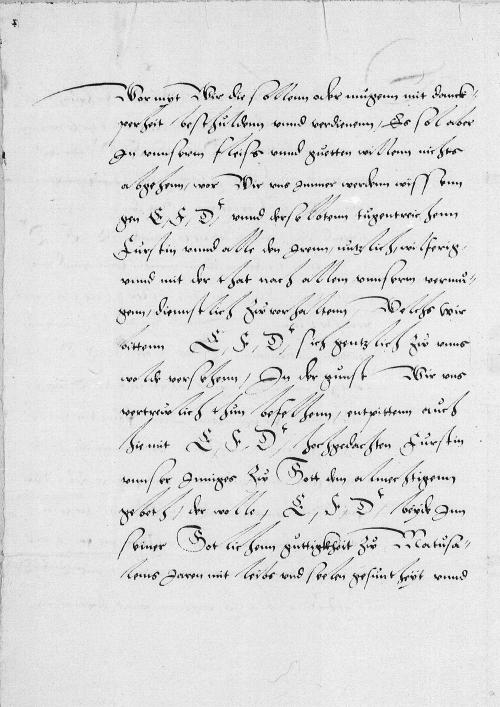 Wormyt Wir die sollenn oder mugenn mit danck-
perheit beschuldenn vnnd verdienenn, Es sol aber
In vnnserm fleiss vnnd guetten willenn nichts
abgehenn, wor Wir vns Immer werdenn wissenn
gen E, F, D vnnd derselbtenn tugentreichenn
Furstin vnnd alle den Irenn, nutzlich, wilferig,
vnnd mit der that nach allem vnnserm vermu-
genn, dienstlich zw vorhaltenn, Welchs wir
bittenn E, F, D, sich gentzlich zw vnns
wolde versehenn, In der gunst Wir vns
vertrewlich thun befelhenn, entpittenn auch
hiemit E, F, D, hochgedachten Furstin
vnnser Inniges zw Gott dem almechtigenn
gebeth, der wolle, E, F, D, beyde Inn
seiner Gotlichenn guttigkheit zw Matusa-
lems Jaren mit leibs vnd seelen gesuntheyt vnnd